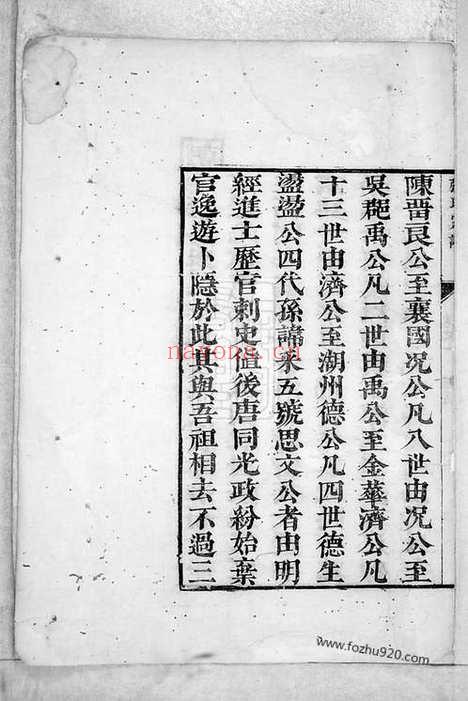 陳晉良公至襄國况公凡八世由况公至
吳興禹公凡二世由禹公至金華濟公凡
十三世由濟公至湖州德公凡四世德生
盪盪公四代孫諱末五號思文公者由明
經進士歷官刺史值後唐同光政紛始棄
官逸遊卜隱於此其與吾祖相去不過三
nayona.cn
www.fozhu920.com